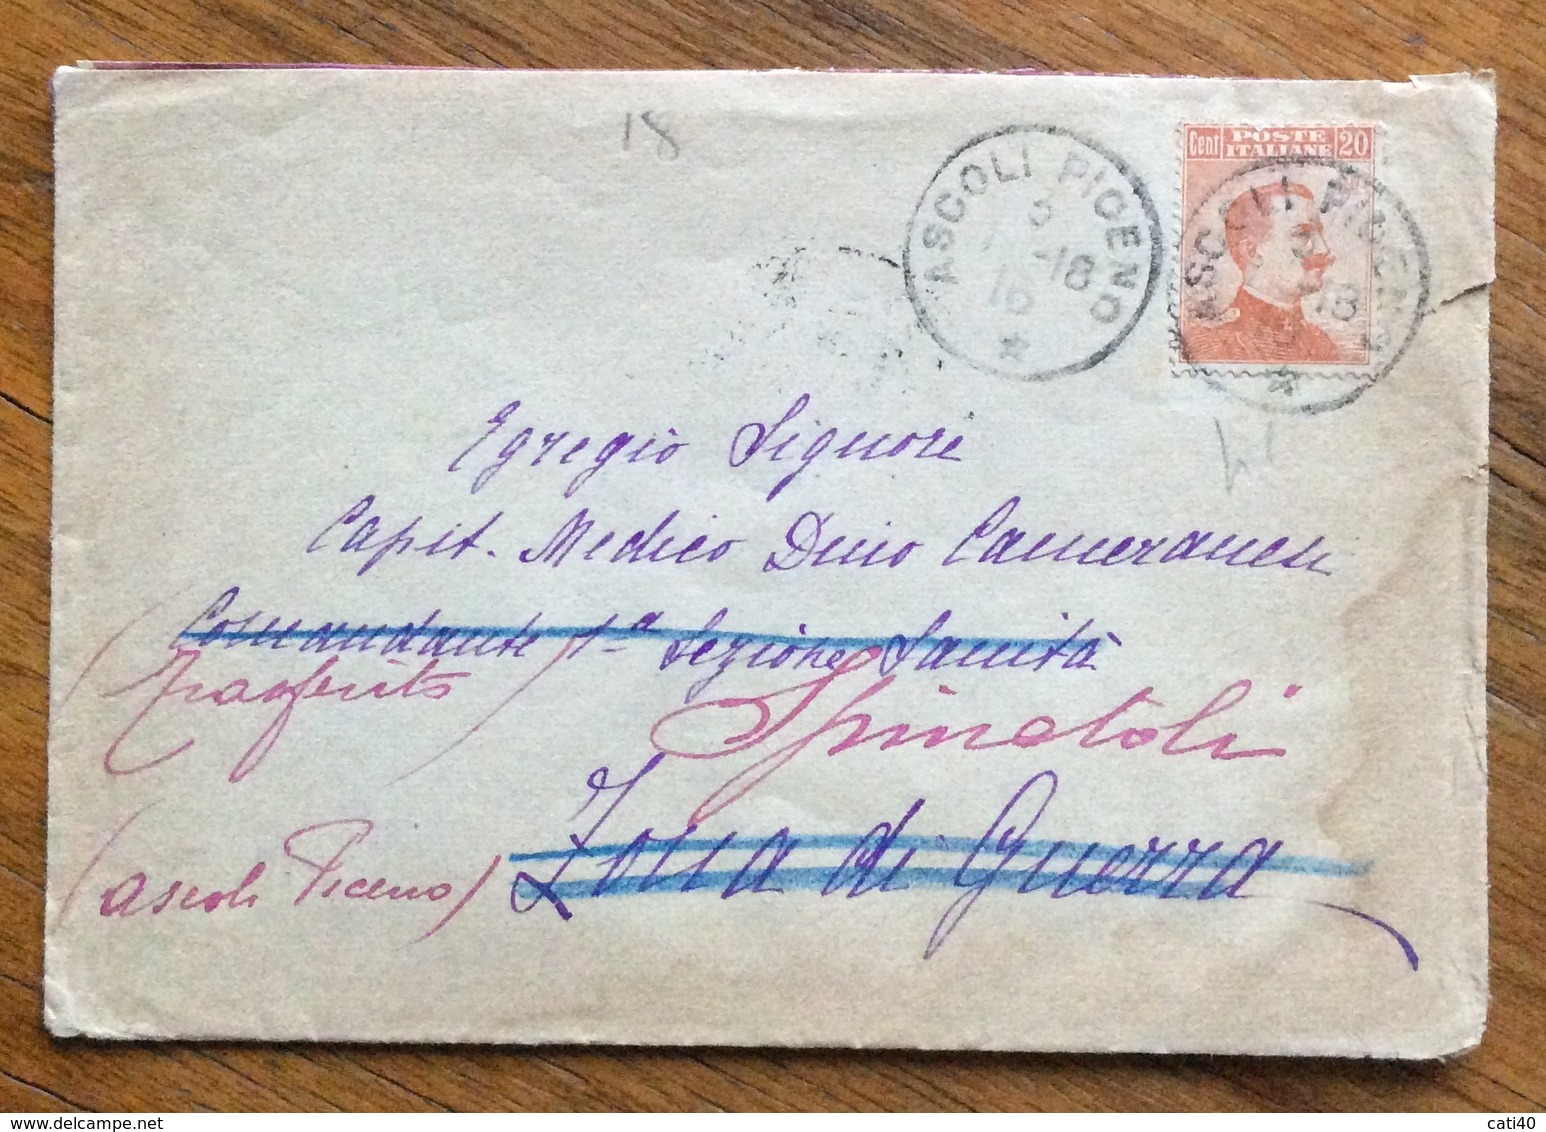 18
ASCOLI PICENO
-18
16
Cent POSTE ITALIANE 20
ASCOLI PICENO
18
Egregio Signore
Capit. Medico Dino Cameranesi
Comandante 1ª Sezione Sanità
(Trasferito)
Spinetoli
Zona di Guerra
(Ascoli Piceno)
cati40
delcampe.net